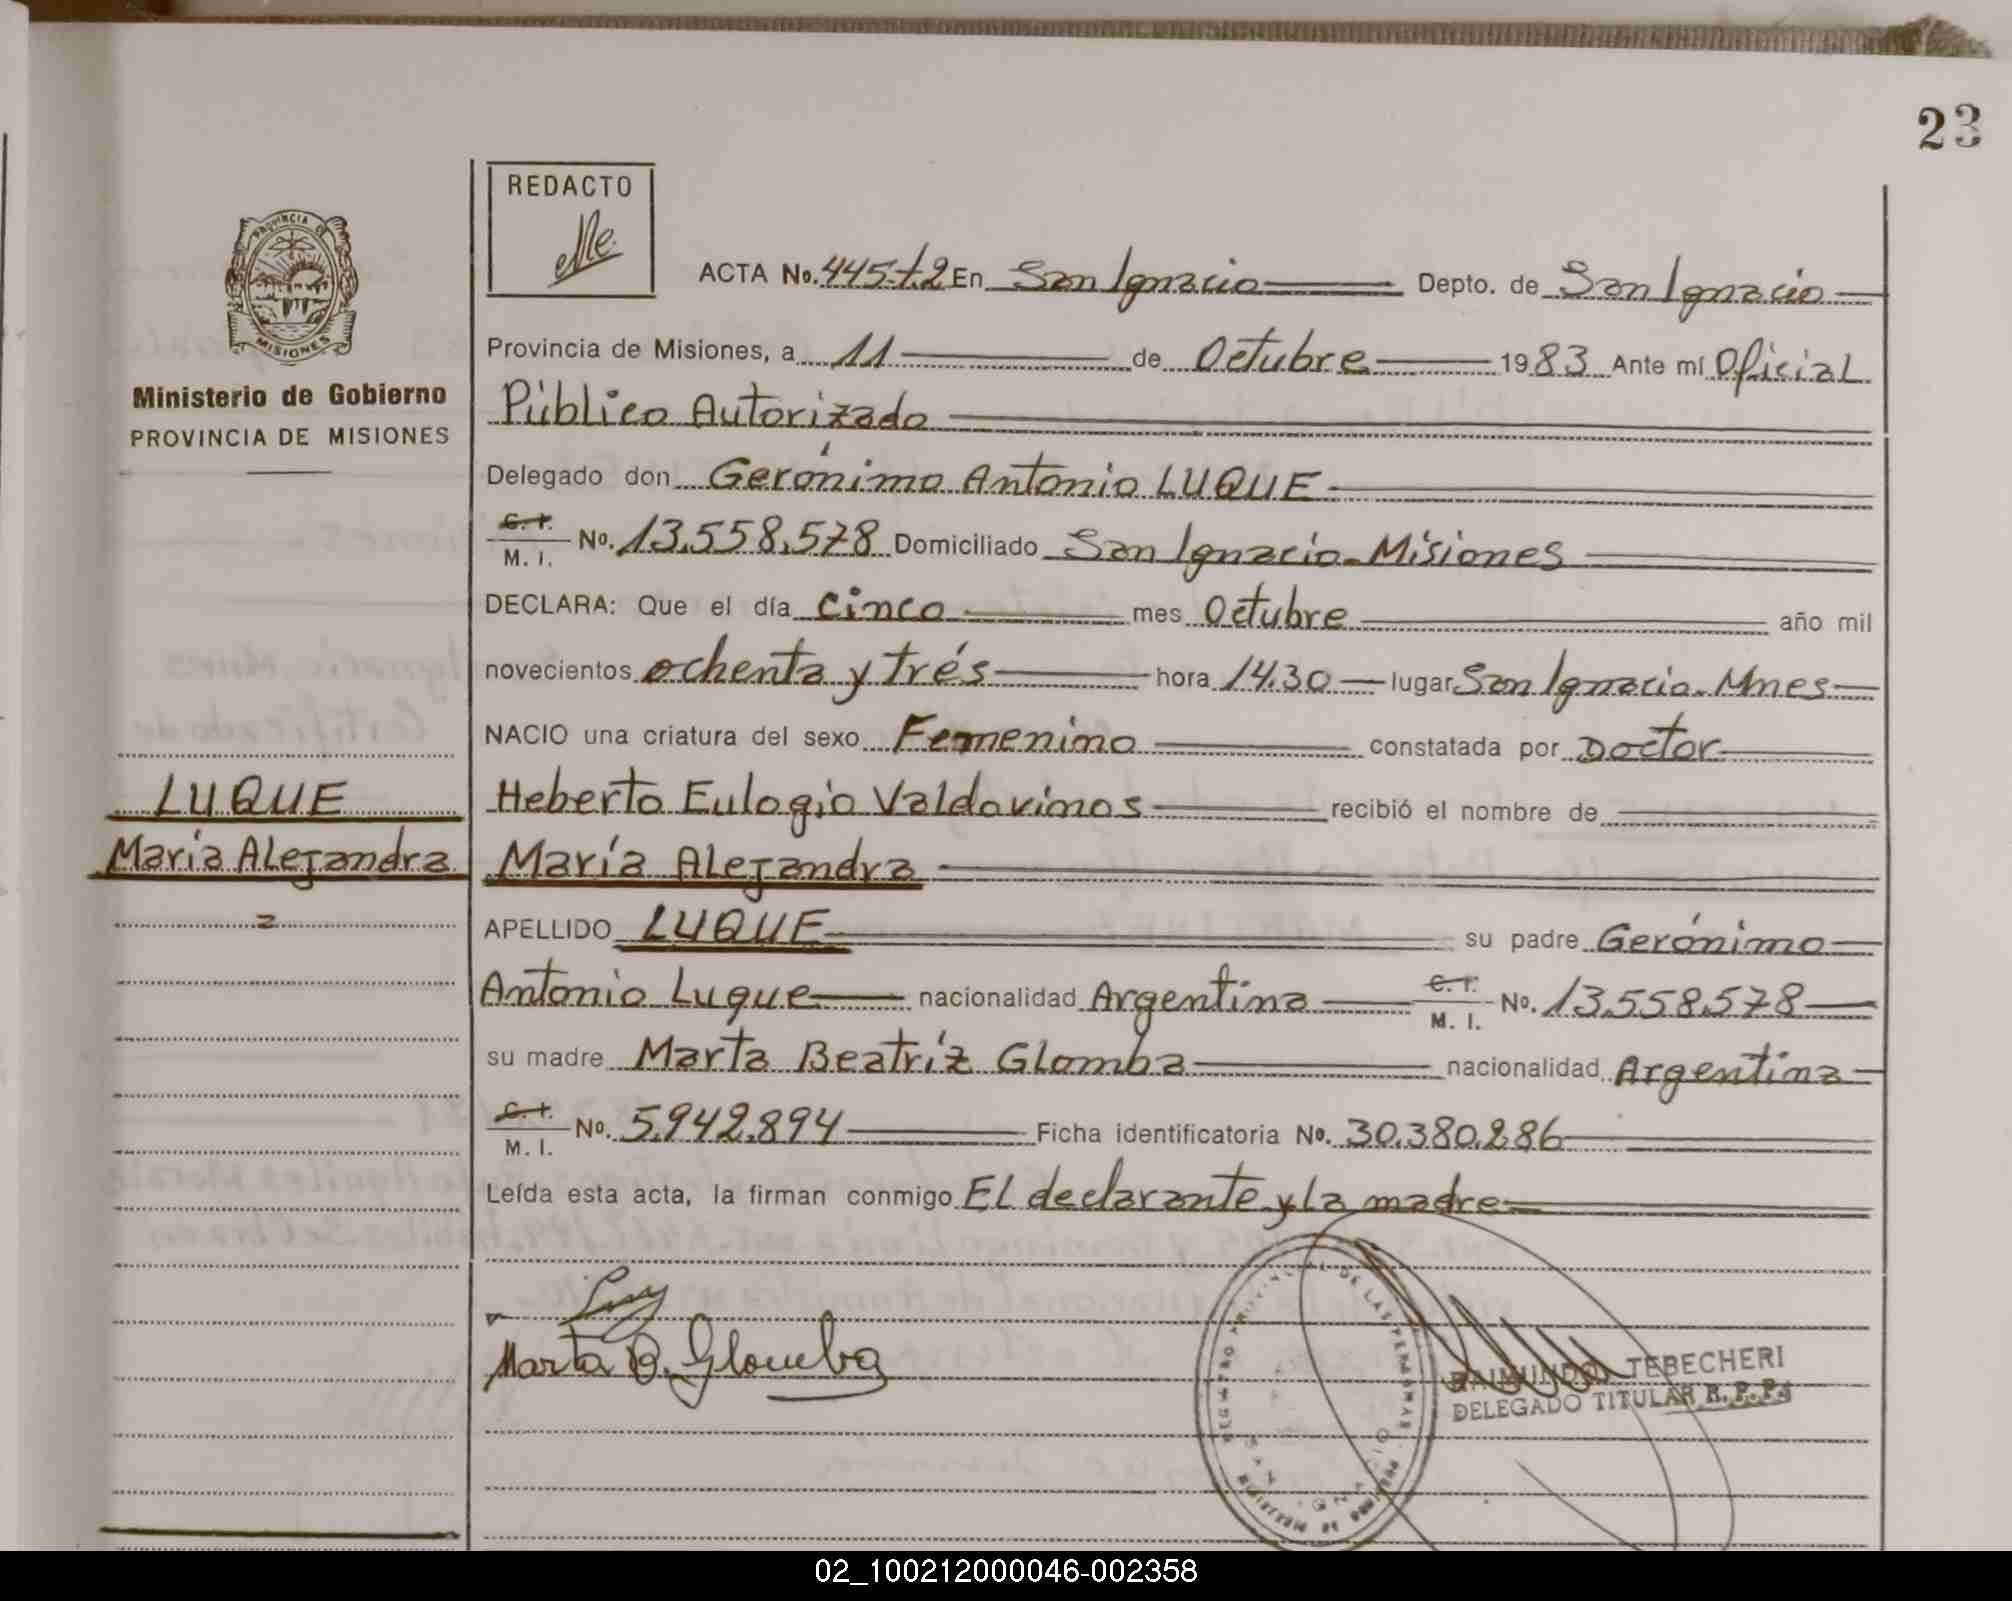 23
REDACTO
PROVINCIA DE
MISIONES
Ministerio de Gobierno
PROVINCIA DE MISIONES
ACTA No. 445-t.2 En San Ignacio Depto. de San Ignacio
Provincia de Misiones, a 11 de Octubre 1983 Ante mí Oficial
Público Autorizado
Delegado don Gerónimo Antonio LUQUE
C. I.
M. I. No. 13.558.578 Domiciliado San Ignacio-Misiones
DECLARA: Que el día cinco mes Octubre año mil
novecientos ochenta y trés hora 14.30 lugar San Ignacio-Mnes
NACIO una criatura del sexo Femenino constatada por Doctor
Heberto Eulogio Valdovinos recibió el nombre de
María Alejandra
APELLIDO LUQUE su padre Gerónimo
Antonio Luque nacionalidad Argentina C. I. M. I. No. 13.558.578
su madre Marta Beatríz Glomba nacionalidad Argentina
C. I.
M. I. No. 5.942.894 Ficha identificatoria No. 30.380.286
Leída esta acta, la firman conmigo El declarante y la madre
LUQUE
María Alejandra
2
Marta B. Glomba
REGISTRO PROVINCIAL DE LAS PERSONAS
SAN IGNACIO
RAIMUNDO TEBECHERI
DELEGADO TITULAR R. P. P.
02_100212000046-002358